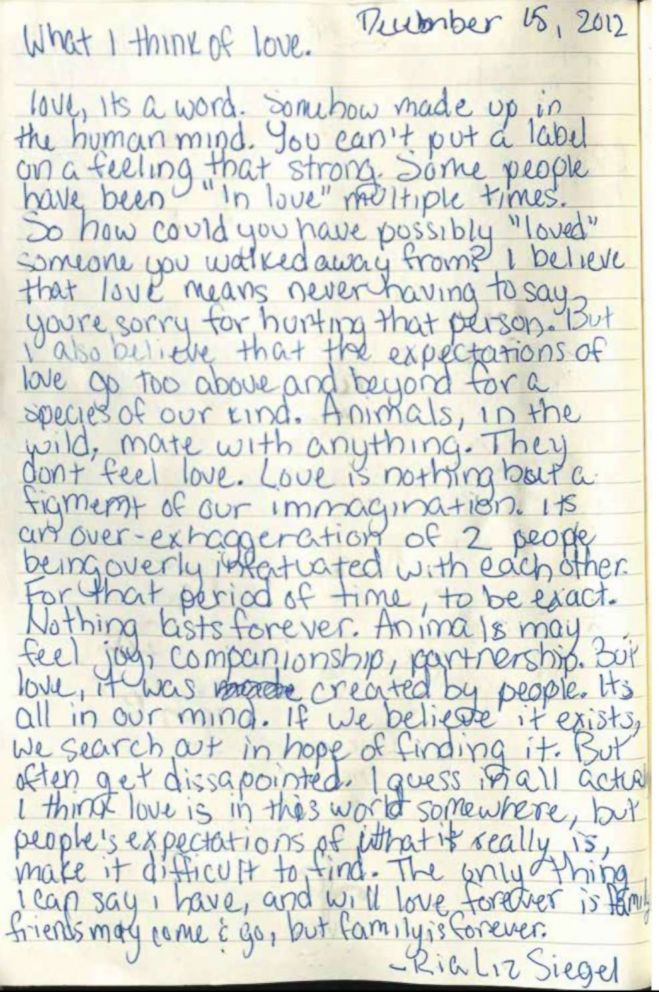 December 15, 2012
What I think of love.
love, its a word. Somehow made up in
the human mind. You can't put a label
on a feeling that strong. Some people
have been "in love" multiple times.
So how could you have possibly "loved"
someone you walked away from? I believe
that love means never having to say
youre sorry for hurting that person. But
I also believe that the expectations of
love go too above and beyond for a
species of our kind. Animals, in the
wild, mate with anything. They
dont feel love. Love is nothing but a
figment of our immagination. Its
an over-exhaggeration of 2 people
being overly infatuated with each other.
For that period of time, to be exact.
Nothing lasts forever. Animals may
feel joy, companionship, partnership. But
love, it was created by people. Its
all in our mind. If we believe it exists,
we search out in hope of finding it. But
often get dissapointed. I guess in all actua
I think love is in this world somewhere, but
people's expectations of what it really is,
make it difficult to find. The only thing
I can say I have, and will love forever is family
friends may come & go, but family is forever.
-Ria Liz Siegel